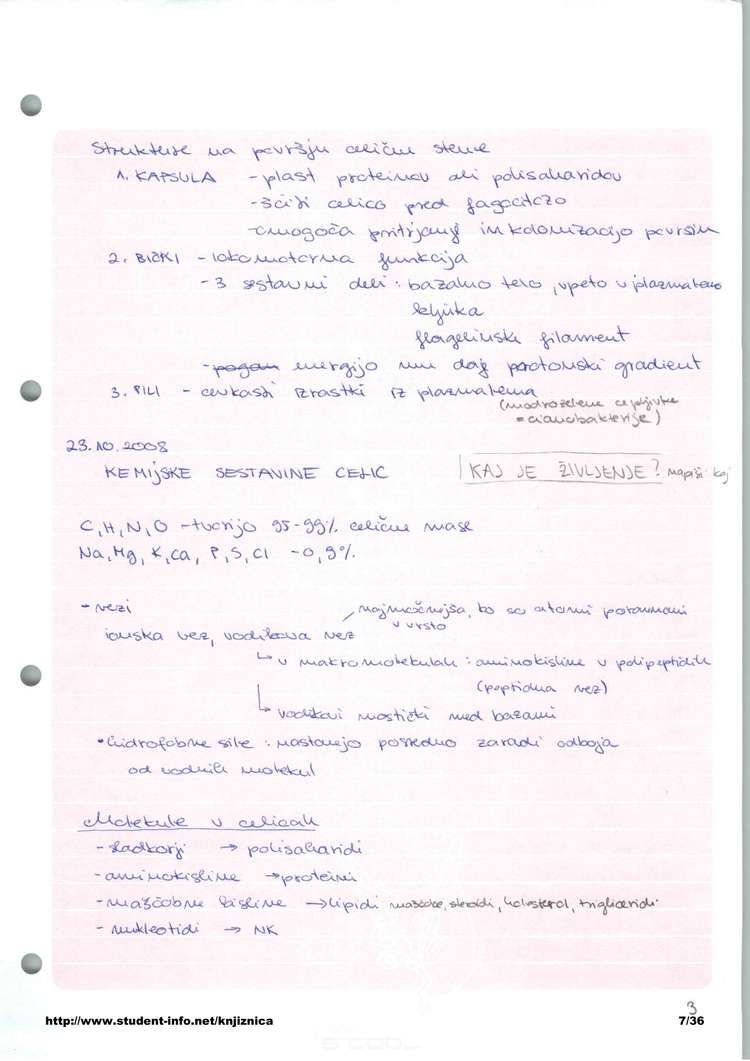 Strukture na površju celične stene
1. KAPSULA - plast proteinov ali polisaharidov
- ščiti celico pred fagocitozo
- omogoča pritrjanj in kolonizacijo površin
2. BIČKI - lokomotorna funkcija
- 3 sestavni deli : bazalno telo, vpeto v plazmalemo
kljuka
flagelinski filament
- pogon energijo mu daj protonski gradient
3. PILI - cevkasti izrastki iz plazmalema
(modrozelene cepljivke
= cianobakterije)
23.10.2008
KEMIJSKE SESTAVINE CELIC
KAJ JE ŽIVLJENJE? napiši kaj
C, H, N, O - tvorijo 95-99% celične mase
Na, Mg, K, Ca, P, S, Cl - 0,9%
- vezi
najmočnejša, ko so atomi poravnani
v vrsto
ionska vez, vodikova vez
↳ v makromolekulah : aminokisline v polipeptidih
(peptidna vez)
↳ vodikovi mostički med bazami
• hidrofobne sile : nastanejo posredno zaradi odboja
od vodnih molekul
Molekule v celicah
- sladkorji → polisaharidi
- aminokisline → proteini
- maščobne kisline → lipidi maščobe, steroidi, holesterol, trigliceridi
- nukleotidi → NK
3
http://www.student-info.net/knjiznica
7/36